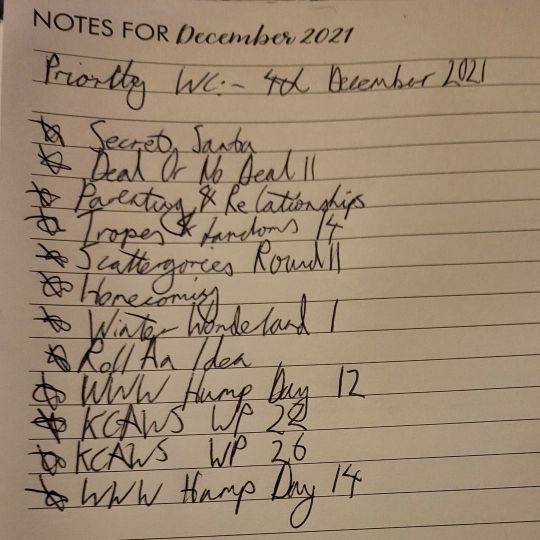 NOTES FOR December 2021
Priority WC:- 4th December 2021
Secret Santa
Deal Or No Deal 11
Parenting & Relationships
Tropes & Fandoms 14
Scattergories Round 11
Homecoming
Winter Wonderland 1
Roll An Idea
WWW Hump Day 12
KCAWS WP 28
KCAWS WP 26
WWW Hump Day 14